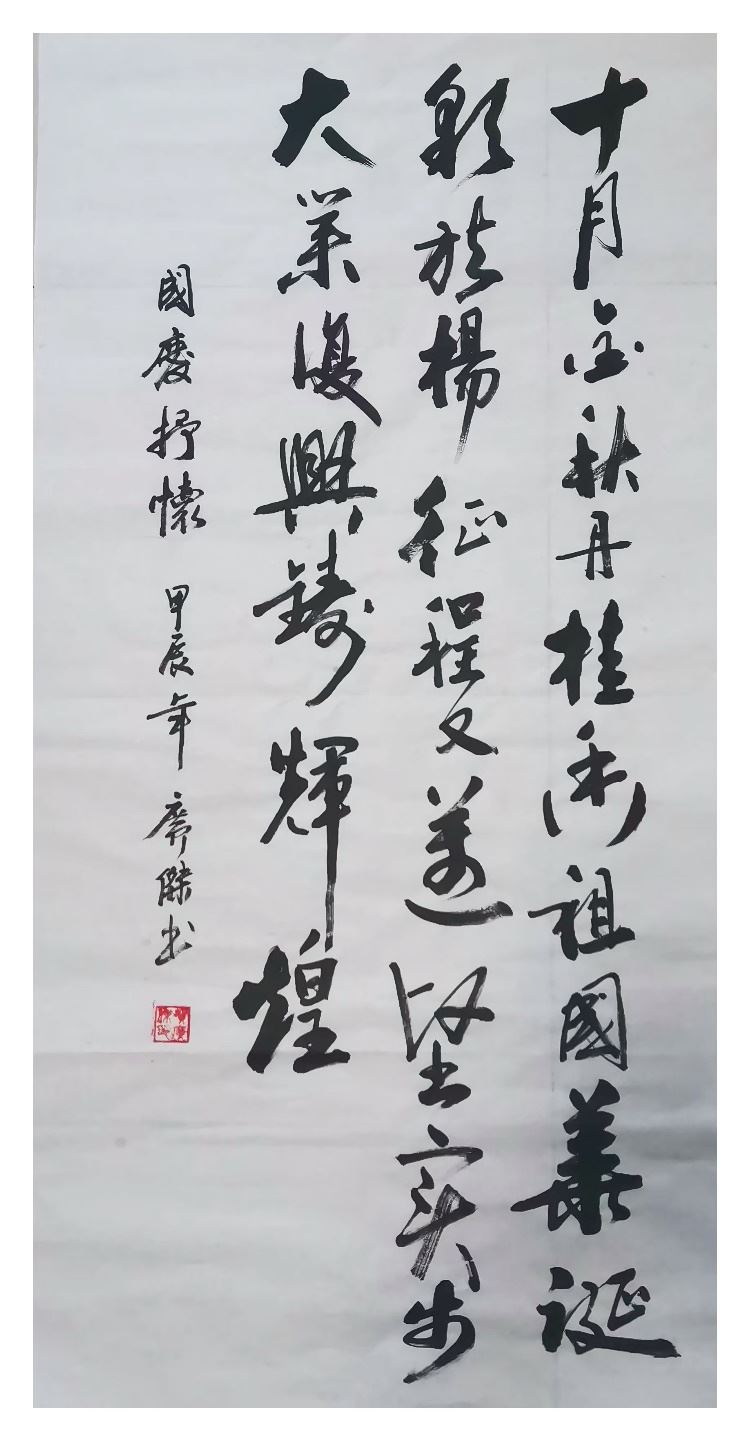 十月金秋丹桂香祖國華誕
彩旗揚征程又邁堅实步
大業復興鑄輝煌
國慶抒懷 甲辰年 席傑书